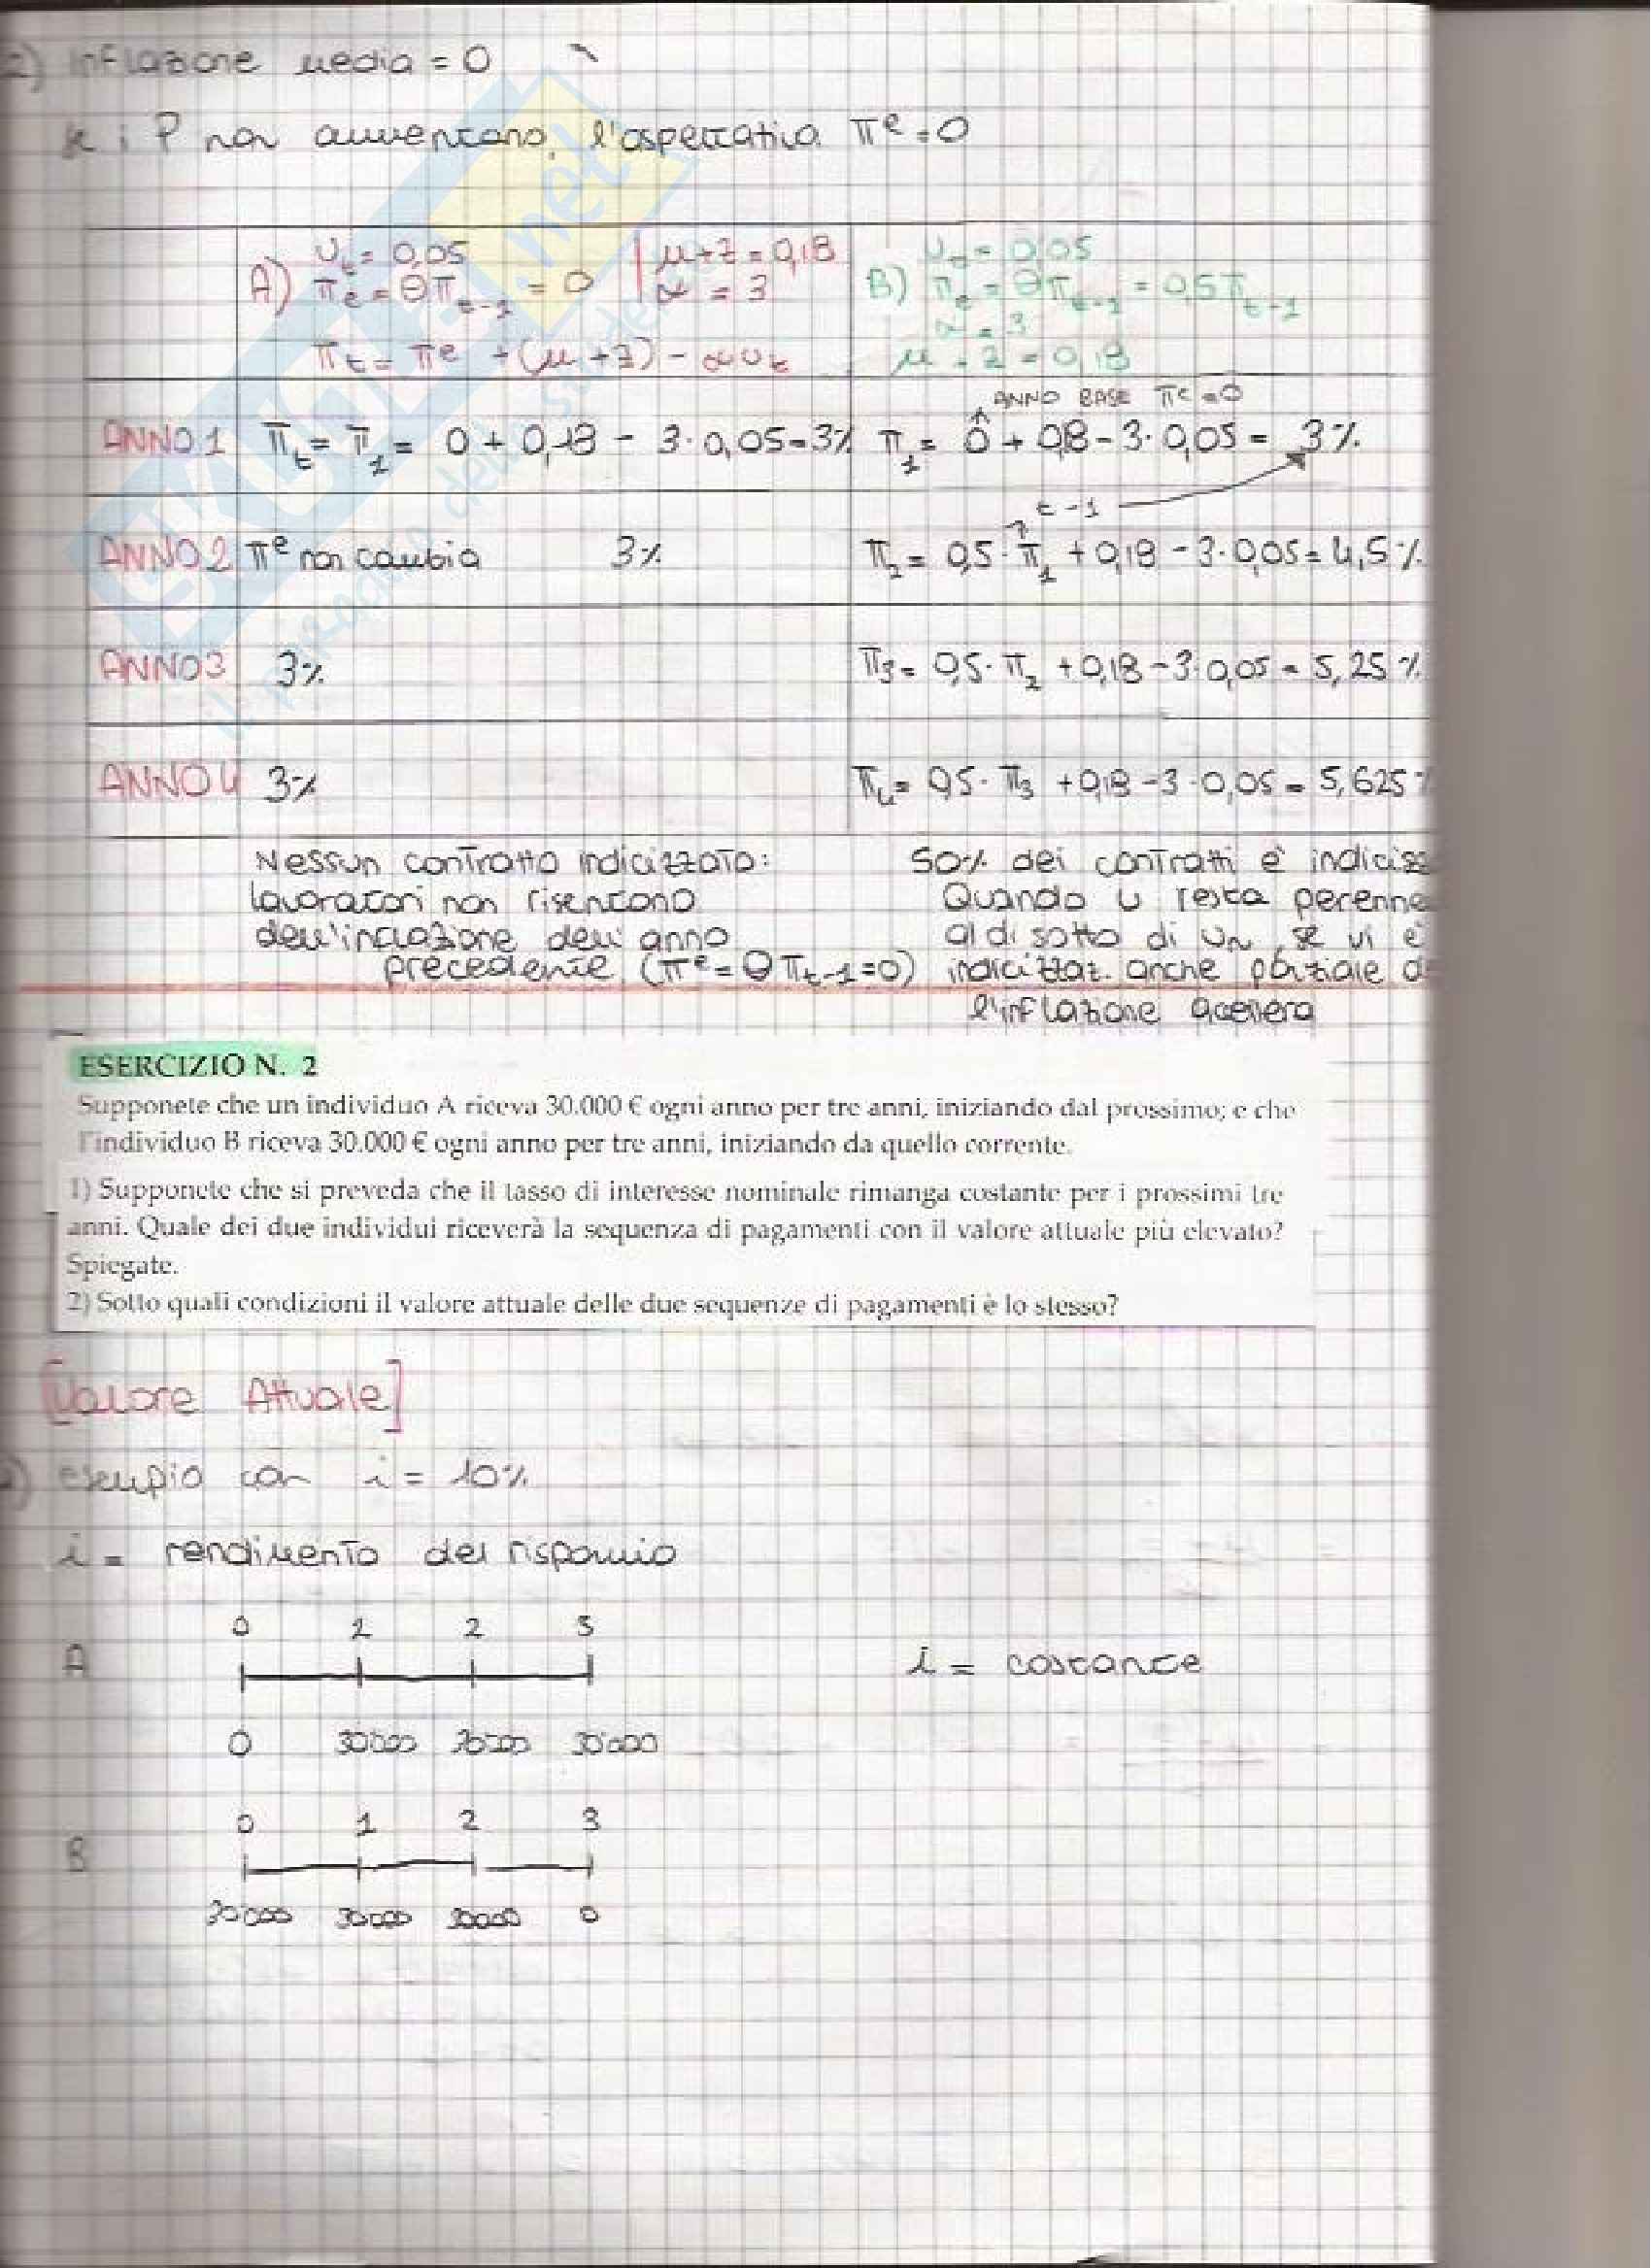 2) Inflazione media = 0
se i P non aumentano, l'aspettativa πᵉ = 0
A) uₜ = 0,05 | μ+z = 0,18
πᵉ = θπₜ₋₁ = 0 | α = 3
πₜ = πᵉ + (μ+z) - αuₜ
B) uₜ = 0,05
πᵉ = θπₜ₋₁ = 0,5πₜ₋₁
α = 3
μ + z = 0,18
ANNO BASE πᵉ = 0
ANNO 1 πₜ = π₁ = 0 + 0,18 - 3·0,05 = 3% π₁ = 0 + 0,18 - 3·0,05 = 3%
t-1
ANNO 2 πᵉ non cambia 3% π₂ = 0,5·π₁ + 0,18 - 3·0,05 = 4,5%
ANNO 3 3% π₃ = 0,5·π₂ + 0,18 - 3·0,05 = 5,25%
ANNO 4 3% π₄ = 0,5·π₃ + 0,18 - 3·0,05 = 5,625%
Nessun contratto indicizzato:
lavoratori non risentono
dell'inflazione dell'anno
precedente (πᵉ = θπₜ₋₁ = 0)
50% dei contratti è indiciz
Quando u resta perenne
al di sotto di uₙ, se vi è
indicizzaz. anche parziale de
l'inflazione accelera
ESERCIZIO N. 2
Supponete che un individuo A riceva 30.000 € ogni anno per tre anni, iniziando dal prossimo; e che
l'individuo B riceva 30.000 € ogni anno per tre anni, iniziando da quello corrente.
1) Supponete che si preveda che il tasso di interesse nominale rimanga costante per i prossimi tre
anni. Quale dei due individui riceverà la sequenza di pagamenti con il valore attuale più elevato?
Spiegate.
2) Sotto quali condizioni il valore attuale delle due sequenze di pagamenti è lo stesso?
[Valore Attuale]
esempio con i = 10%
i = rendimento del risparmio
0 1 2 3
A i = costante
0 30'000 30'000 30'000
0 1 2 3
B
30000 30000 30000 0
SKUOLA.net